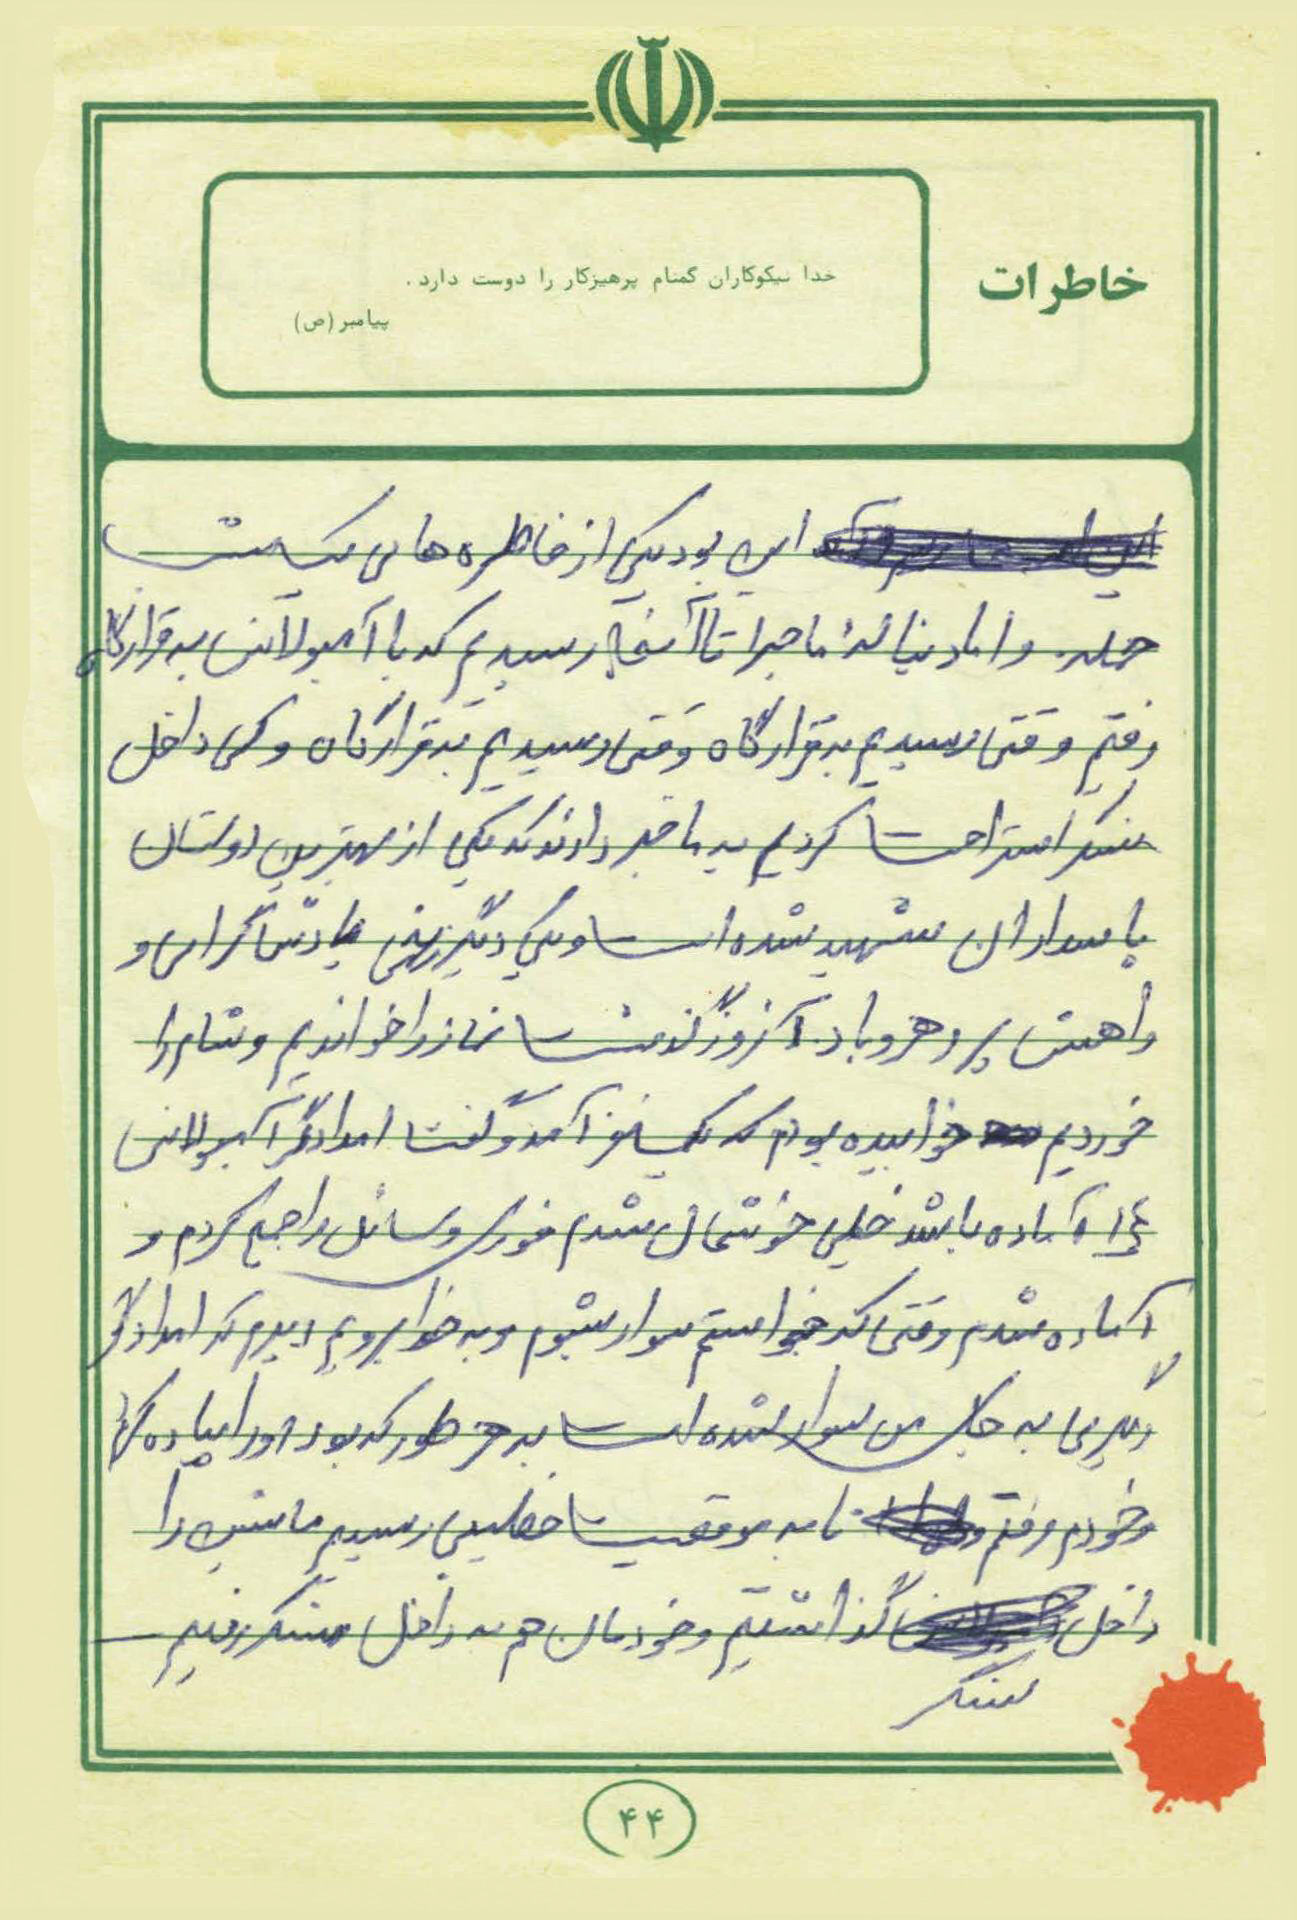 خاطرات
خدا نیکوکاران گمنام پرهیزکار را دوست دارد .
پیامبر (ص)
این بود یکی از خاطره های یک شب
حمله. و اما دنبالهٔ ماجرا تا آنجا رسیدیم که با آمبولانس به قرارگاه
رفتم وقتی رسیدیم به قرارگاه وقتی رسیدیم به قرارگاه و کمی داخل
سنگر استراحت کردیم به ما خبر دادند که یکی از بهترین دوستان
پاسداران شهید شده است و یکی دیگر زخمی یادش گرامی و
راهش پر رهرو باد. آنروز گذشت نماز را خواندیم و شام را
خوردیم خوابیده بودم که یک نفر آمد و گفت امدادگر آمبولانس
۱۴ آماده باشد خیلی خوشحال شدم فوری وسائل را جمع کردم و
آماده شدم وقتی که خواستم سوار شوم و به خط برویم دیدم که امدادگر
دیگری به جای من سوار شده است به هر طور که بود او را پیاده
و خودم رفتم تا به موقعیت خطیبی رسیدیم ماشین را
داخل گذاشتیم و خودمان هم به داخل سنگر رفتیم
سنگر
۴۴